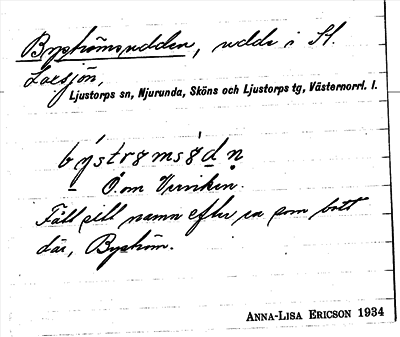 Byströmsudden, udde i St.
Laxsjön,
Ljustorps sn, Njurunda, Sköns och Ljustorps tg, Västernorrl. l.
býstrømsø̀dn̥
Ö. om Viniken.
Fått sitt namn efter en som bott
där, Byström.
ANNA-LISA ERICSON 1934